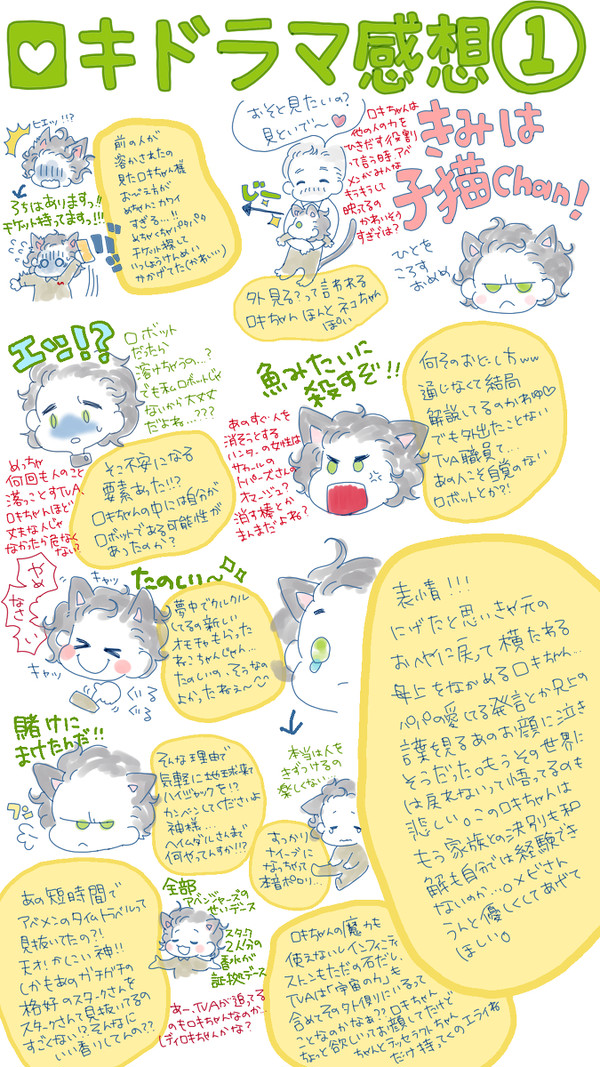 ロキドラマ感想①
ヒエッ!!?
ろちはありますっ!!
チケット持ってますっ!!!
前の人が
溶かされたの
見たロキちゃん様
おべえネコが
めちゃんこカワイ
すぎる…!!
めちゃくちゃパタパタ
チケット探して
いっしょうけんめい
サかげてた(かわいい)
おそと見たいの?
見といで〜♡
じー
ロキちゃんは
他の人の力を
ひきだす役割
って言う時、アベ
メンがみんな
キラキラして
映ってるの
かわいそう
すぎでは?
きみは
子猫Chan!
外見る?って言われる
ロキちゃん ほんと ネコちゃん
ぽい
ひとを
ころす
おめめ
エッ!?
ロボット
だったら
溶けちゃうの…?
でも私ロボットじゃ
ないから大丈丈
だよね…???
めっちゃ
何回も人のこと
落っことすTVA、
ロキちゃんほど
丈夫な人じゃ
なかったら危なく
ない?
そこ不安になる
要素あった!!?
ロキちゃんの中には自分が
ロボットである可能性が
あったのか?
魚みたいに
殺すぞ!!
あのすぐ人を
消そうとする
ハンターの女性は
サカールの
トパーズさんの
オマージュ?
消す棒とか
まんまだよね?
何そのおどし方ww
通じなくて結局
解説してるのかわゆ♡
でも外出たことない
TVA職員て…
あの人こそ自覚のない
ロボットとか?!
やめ
なさい
キャッ
キャッ
たのしい〜
ぐる
ぐる
夢中でクルクル
してるの新しい
オモチャもらった
ねこちゃんじゃん…
たのしいの…そうなの
よかったねぇ〜
表情!!!
にげたと思いきや元の
おへやに戻って横たわる
母上をながめるロキちゃん…
パパの愛してる発言とか兄上の
言葉を視るあのお顔に泣き
そうだった。もうその世界に
は戻れないって悟ってるのも
悲しい。このロキちゃんは
もう家族との決別も和
解も自分では経験でき
ないのか…。メビさん
うんと優しくしてあげて
ほしい。
賭けに
まけたんだ!!
フンッ
そんな理由で
気軽に地球来て
ハイジャックを!?
カンベンしてくださいよ
神様…
ヘイムダルさんまで
何やってんすか!!?
本当は人を
きずつけるの
楽しくない…
すっかり
ナイーブに
なっちゃって
本音ポロリ…
あの短時間で
アベメンのタイムトラベルって
見抜いてたの?!
天才!かしこい神!!
しかもあのガチガチの
格好のスタークさんを
スタークさんて見抜いてるの
すごくない!?そんなに
いい香りしてんの??
全部
アベンジャーズの
せいデース
スターク
2人分の
香水が
証拠デース
あー、TVAが追ってる
のもロキちゃんなのか…
レディロキちゃんかな?
ロキちゃんの魔力も
使えないしインフィニティ
ストーンもただの石だし、
TVAは「宇宙の力」も
含めてその外側にいるって
ことなのかなぁ??ロキちゃん
ちょっと欲しいってお顔してたけど
ちゃんとテッセラクトちゃん
だけ持ってくのエライね